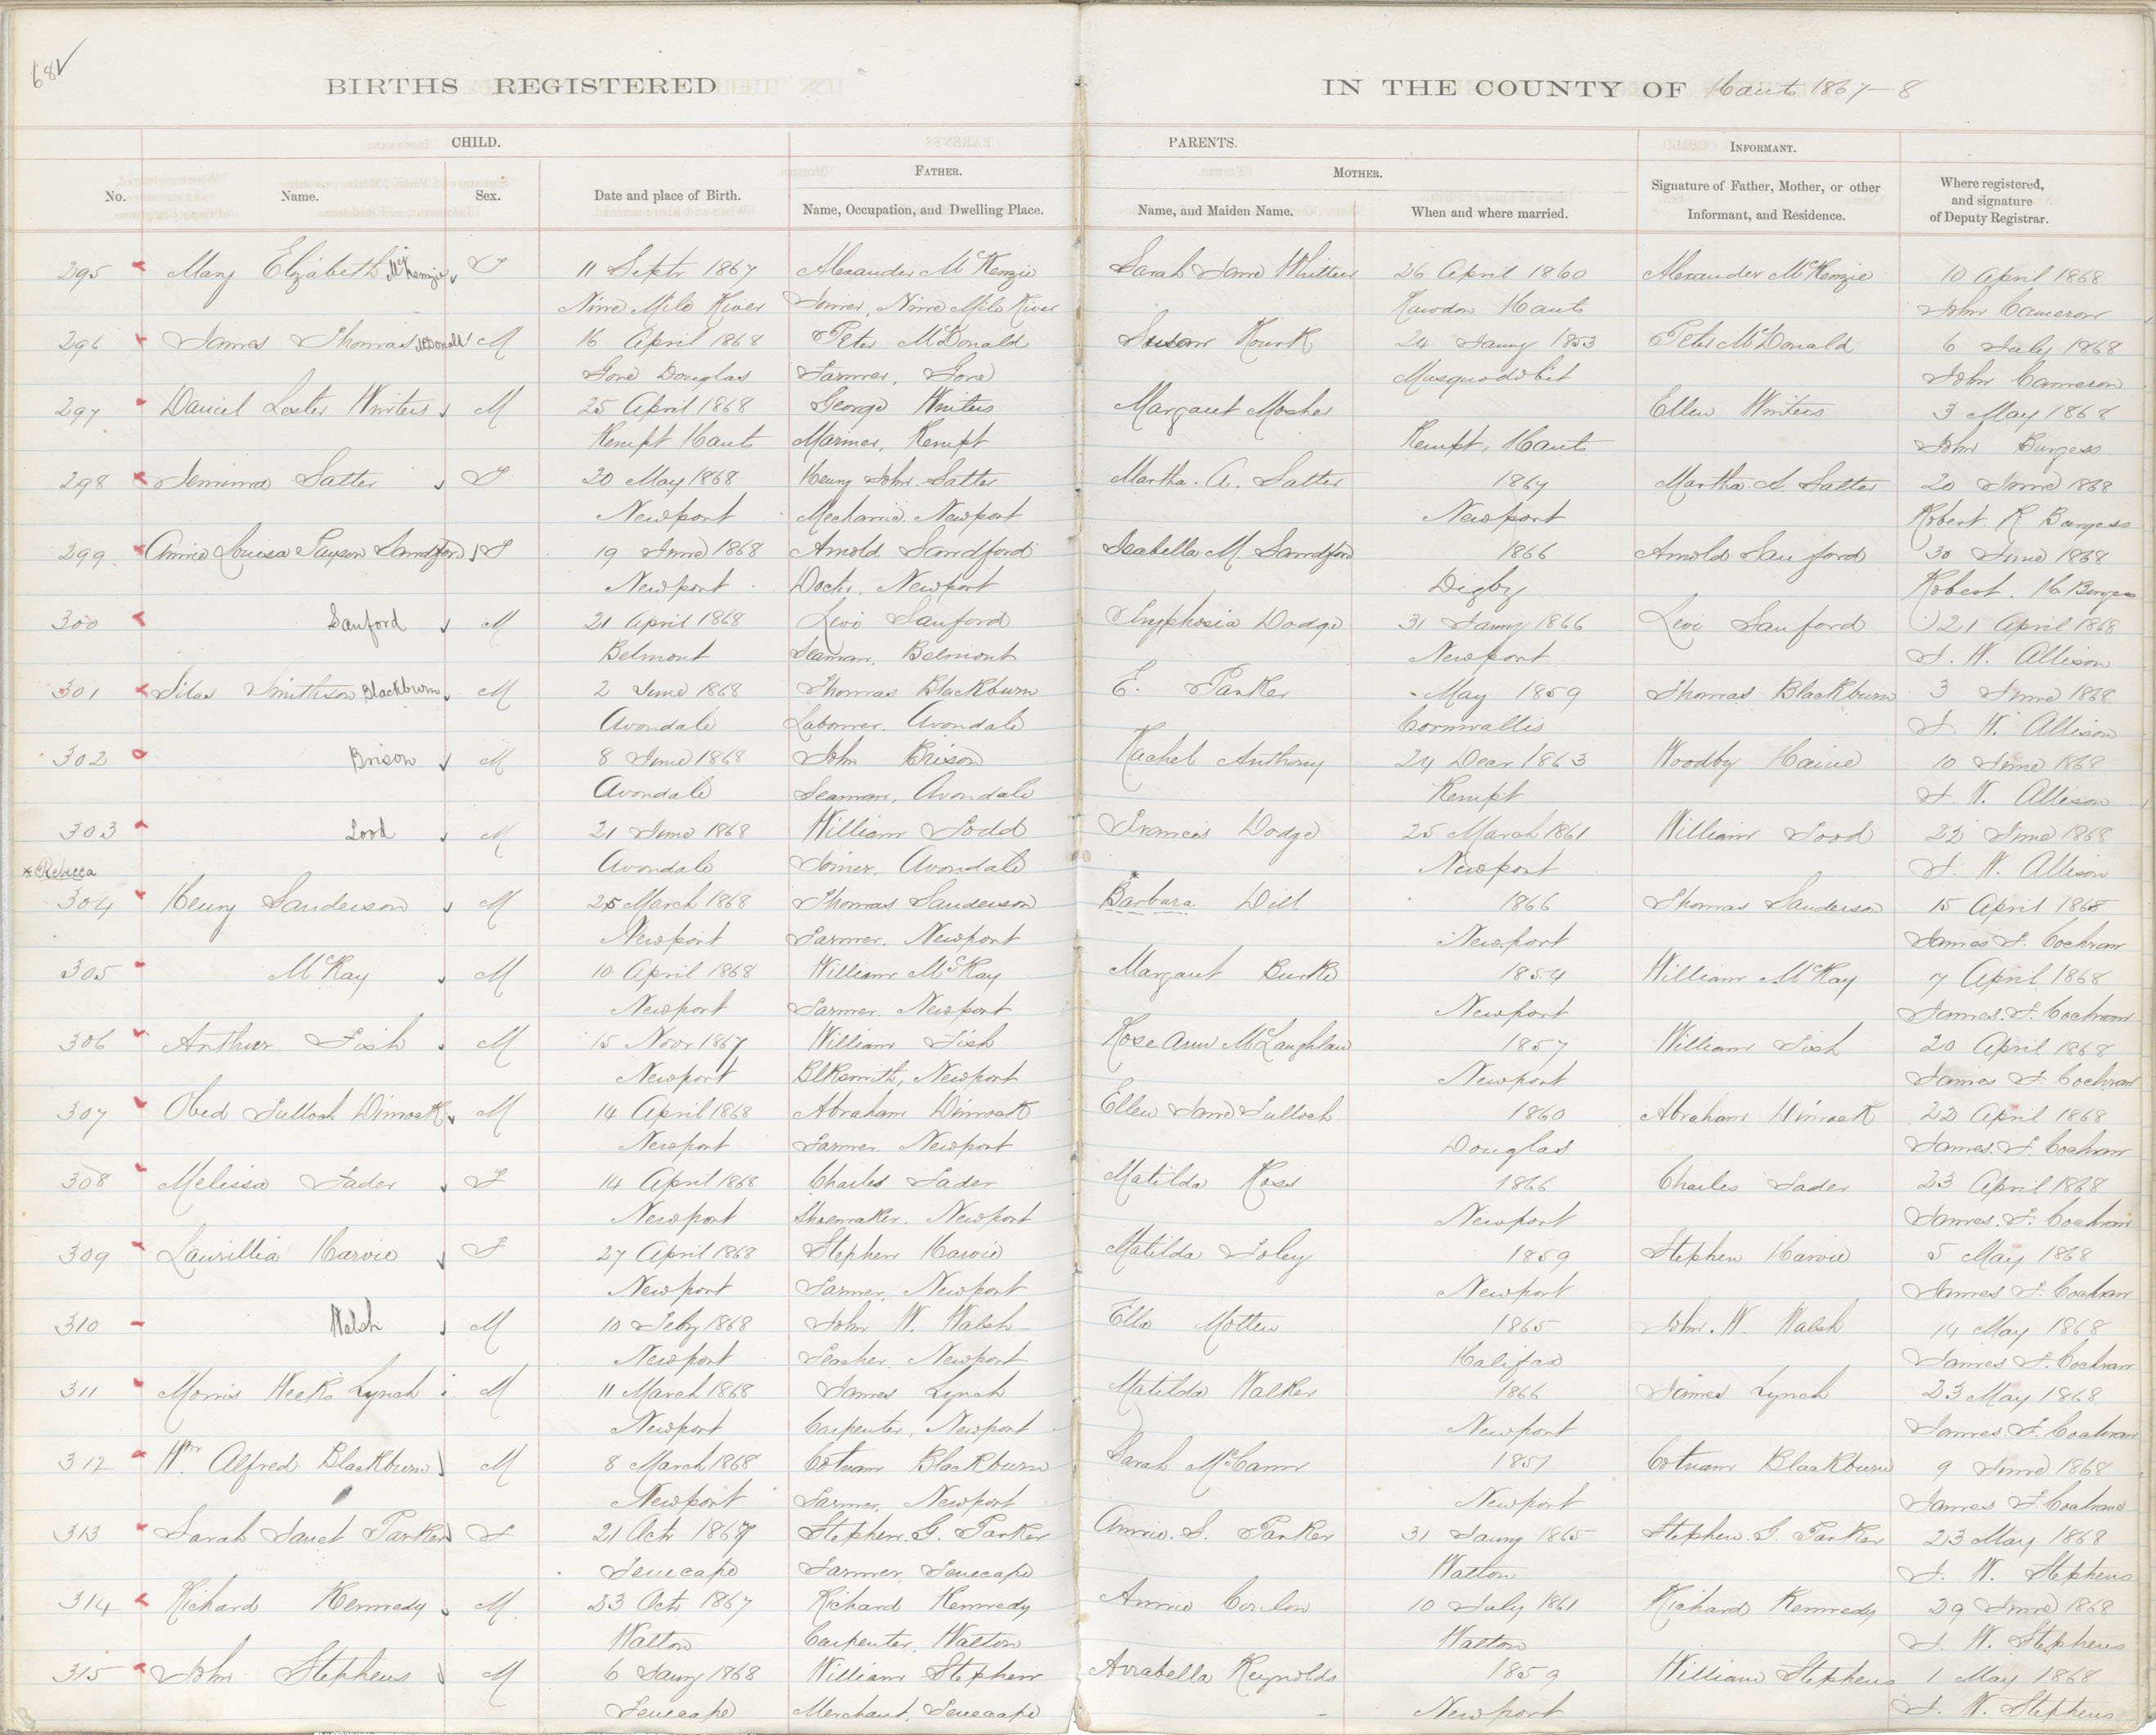 68
BIRTHS REGISTERED IN THE COUNTY OF Hants 1867-8
CHILD. PARENTS. INFORMANT.
FATHER. MOTHER.
No. Name. Sex. Date and place of Birth. Name, Occupation, and Dwelling Place. Name, and Maiden Name. When and where married. Signature of Father, Mother, or other Informant, and Residence. Where registered, and signature of Deputy Registrar.
295 Mary Elizabeth McKenzie F 11 Septr 1867 Alexander McKenzie Sarah Jane Whittier 26 April 1860 Alexander McKenzie 10 April 1868
Nine Mile River Joiner, Nine Mile River Rawdon Hants John Cameron
296 James Thomas McDonald M 16 April 1868 Peter McDonald Susan Kourk 24 Jany 1853 Peter McDonald 6 July 1868
Gore Douglas Farmer, Gore Musquodobit John Cameron
297 Daniel Lester Winters M 25 April 1868 George Winters Margaret Mosher Ellen Winters 3 May 1868
Kempt Hants Mariner, Kempt Kempt, Hants John Burgess
298 Jemima Salter F 20 May 1868 Henry John Salter Martha. A. Salter 1867 Martha. A. Salter 20 June 1868
Newport Mechanic. Newport Newport Robert R Burgess
299 Annie Louisa Payson Sandford F 19 June 1868 Arnold Sandford Isabella M. Sandford 1866 Arnold Sanford 30 June 1868
Newport Doctr. Newport Digby Robert. H Burgess
300 Sanford M 21 April 1868 Levi Sanford Symphosia Dodge 31 Jany 1866 Levi Sanford 21 April 1868
Belmont Seaman. Belmont Newport J. W. Allison
301 Silas Smithson Blackburn M 2 June 1868 Thomas Blackburn E. Parker May 1859 Thomas Blackburn 3 June 1868
Avondale Labourer. Avondale Cornwallis J. W. Allison
302 Brison M 8 June 1868 John Brison Rachel Anthony 24 Decr 1863 Woodby Haine 10 June 1868
Avondale Seaman, Avondale Kempt J. W. Allison
303 M 21 June 1868 William Francis Dodge 25 March 1861 William 22 June 1868
Avondale Joiner. Avondale Newport J. W. Allison
*Rebecca
304 Henry Sanderson M 25 March 1868 Thomas Sanderson *Barbara Dill 1866 Thomas Sanderson 15 April 1868
Newport Farmer. Newport Newport James F. Cochran
305 McKay M 10 April 1868 William McKay Margaret Burke 1854 William McKay 7 April 1868
Newport Farmer. Newport Newport James. F. Cochran
306 Arthur Fish M 15 Novr 1867 William Fish Rose Ann McLaughlan 1857 William Fish 20 April 1868
Newport Blksmith, Newport Newport James F Cochran
307 Obed Tulloch Dimock M 14 April 1868 Abraham Dimock Ellen Jane Tulloch 1860 Abraham Dimock 22 April 1868
Newport Farmer. Newport Douglas James. F. Cochran
308 Melissa Fader F 14 April 1868 Charles Fader Matilda Ross 1866 Charles Fader 23 April 1868
Newport Shoemaker. Newport Newport James. F. Cochran
309 Laurillia Harvie F 27 April 1868 Stephen Harvie Matilda Foley 1859 Stephen Harvie 5 May 1868
Newport Farmer, Newport Newport James F. Cochran
310 Walsh M 10 Feby 1868 John W. Walsh Ella Motten 1865 John. W. Walsh 14 May 1868
Newport Teacher. Newport Halifax James F. Cochran
311 Morris Weeks Lynch M 11 March 1868 James Lynch Matilda Walker 1866 James Lynch 23 May 1868
Newport Carpenter, Newport Newport James F. Cochran
312 Wm Alfred Blackburn M 8 March 1868 Cotnam Blackburn Sarah McCann 1857 Cotnam Blackburn 9 June 1868
Newport Farmer, Newport Newport James F. Cochrane
313 Sarah Janet Parker F 21 Octr 1867 Stephen. G. Parker Annie. S. Parker 31 Jany 1865 Stephen. G. Parker 23 May 1868
Tenecape Farmer, Tenecape Walton J. W. Stephens
314 Richard Kennedy M 23 Octr 1867 Richard Kennedy Annie Conlon 10 July 1861 Richard Kennedy 29 June 1868
Walton Carpenter, Walton Walton J. W. Stephens
315 John Stephens M 6 Jany 1868 William Stephens Arrabella Reynolds 1859 William Stephens 1 May 1868
Tenecape Merchant, Tenecape Newport J. W. Stephens